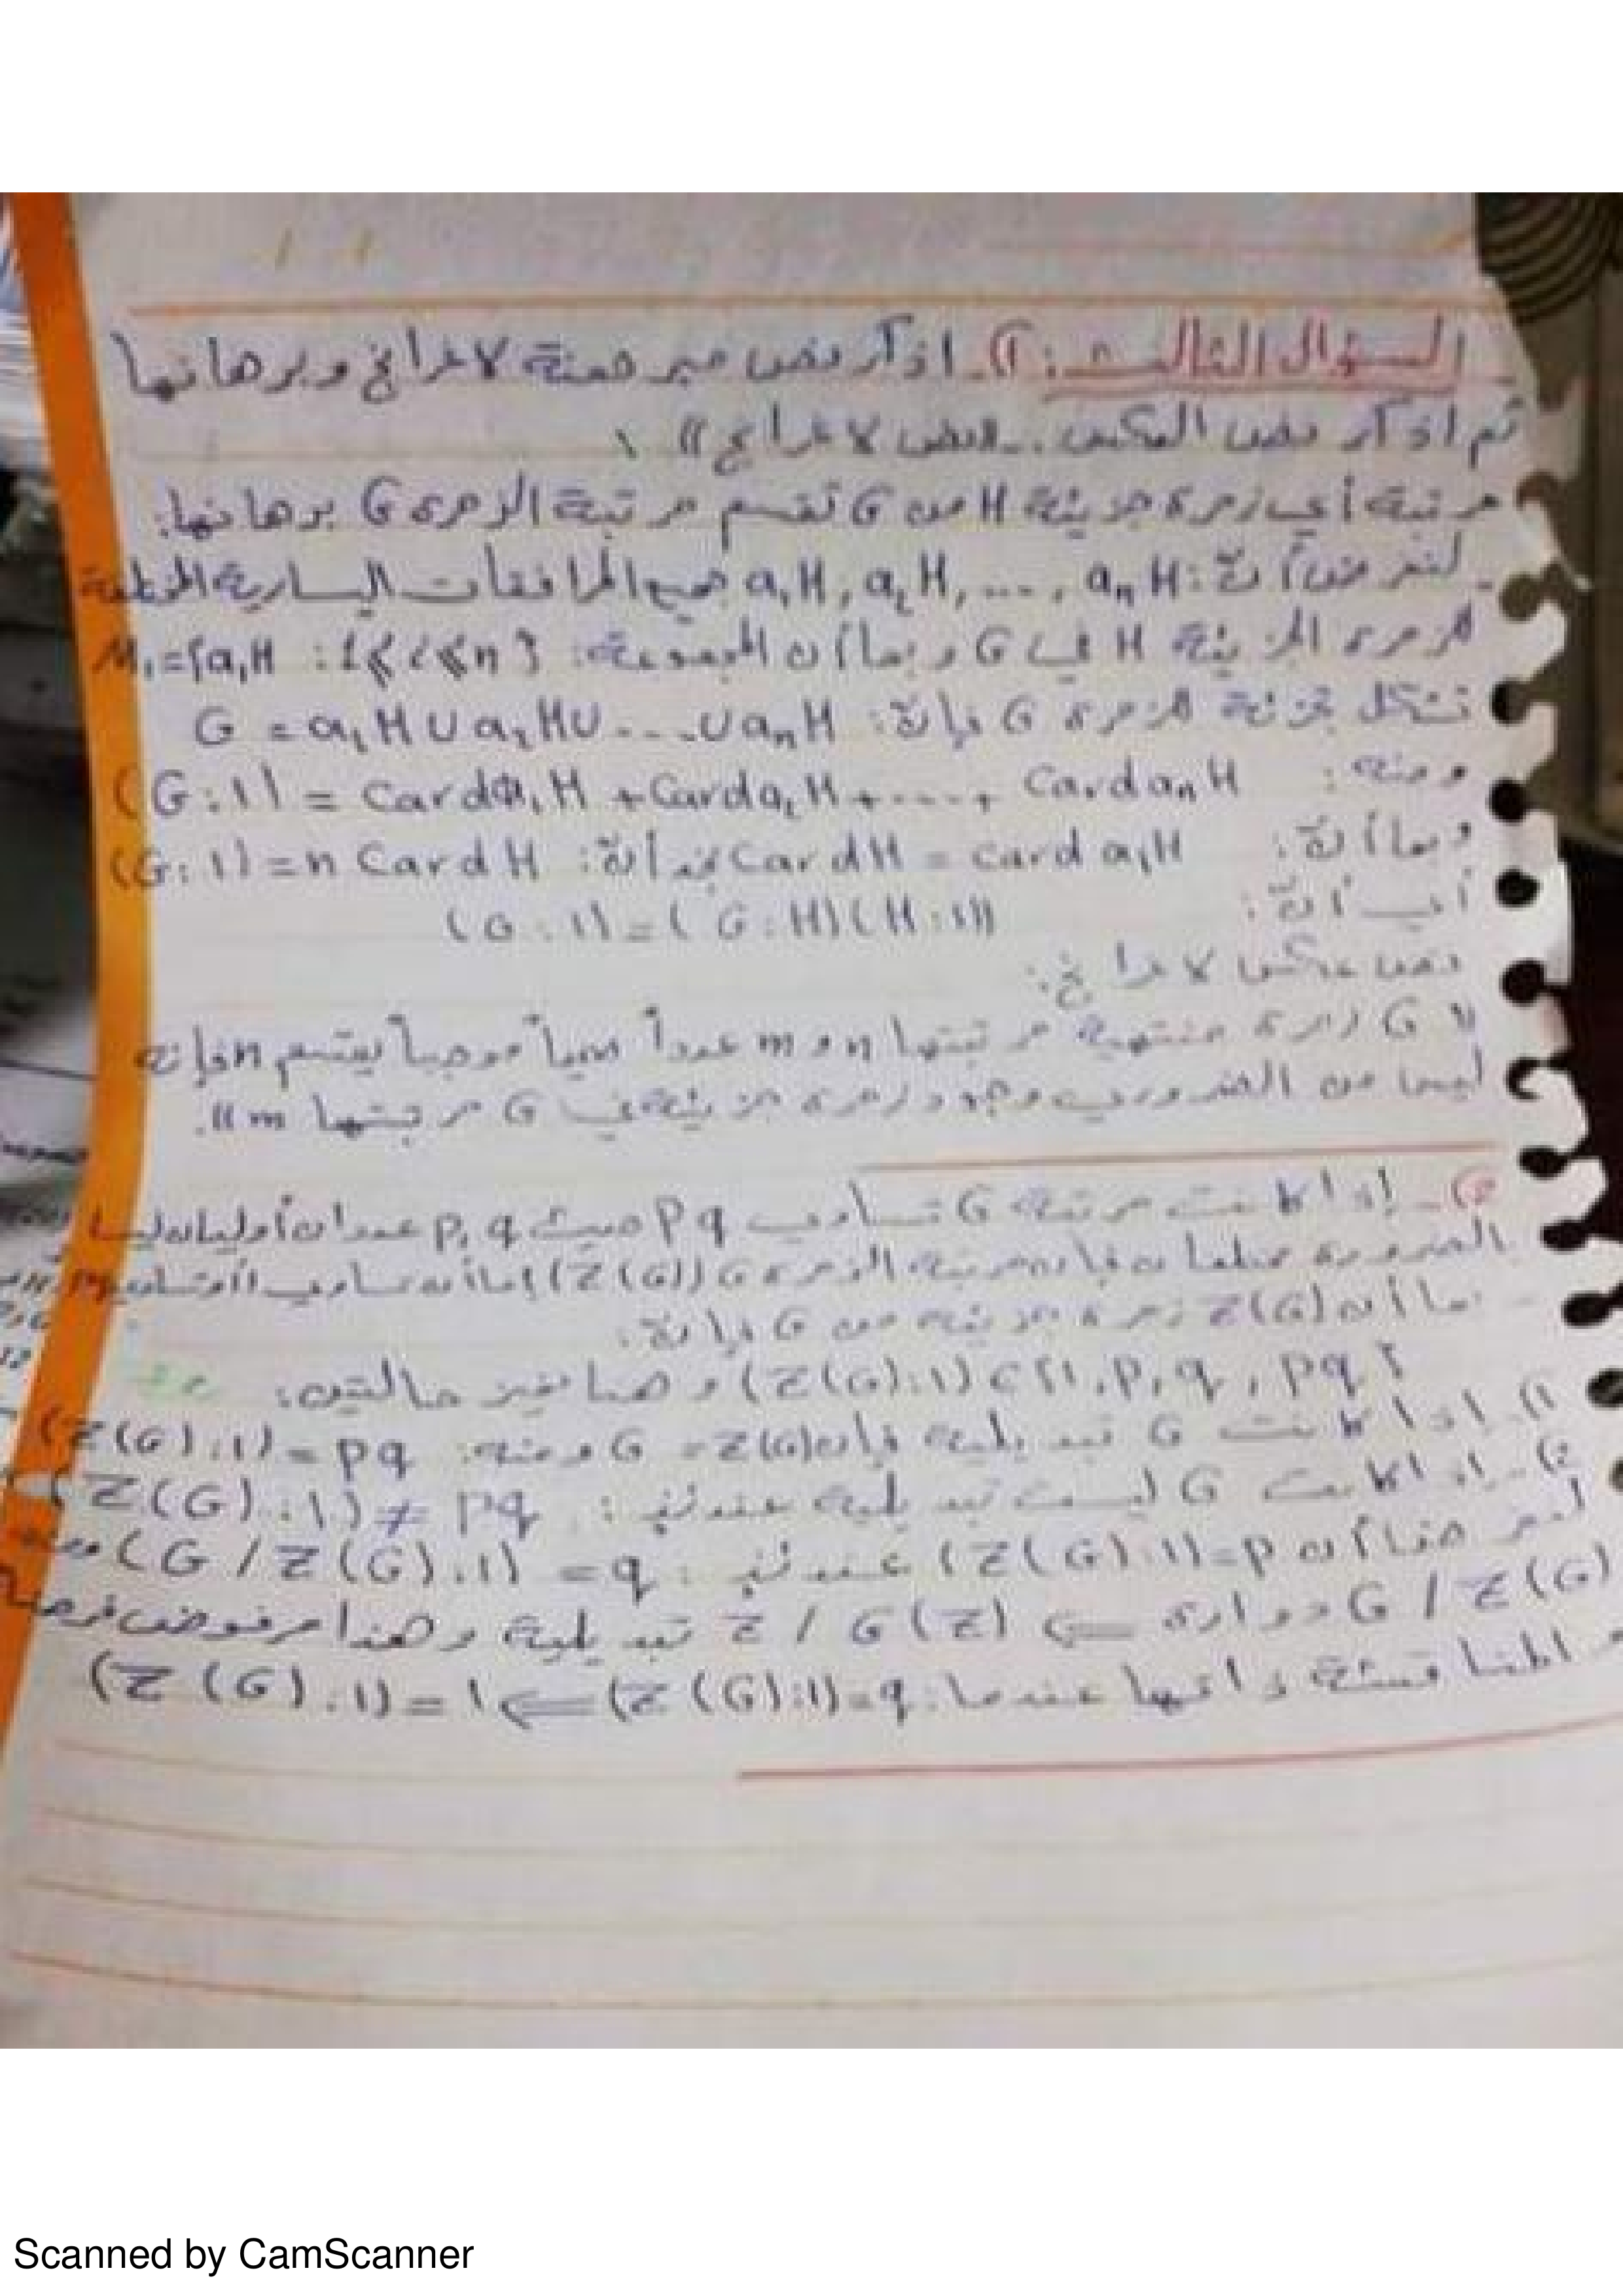 السؤال الثالث: 1)- اذكر نص مبرهنة لاغرانج وبرهانها
ثم اذكر نص العكس.. «نص لاغرانج»
مرتبة أي زمرة جزيئة H من G تقسم مرتبة الزمرة G برهانها:
لنفرض أنّ: a₁H, a₂H, ..., aₙH جميع المرافقات اليسارية المختلفة
للزمرة الجزيئة H في G وبما أن المجموعة: M₁={aᵢH : 1≤i≤n}
تشكل تجزئة للزمرة G فإنّ: G = a₁H ∪ a₂H ∪ ... ∪ aₙH
ومنه: (G:1) = Card a₁H + Card a₂H + ... + Card aₙH
وبما أنّ: Card H = card a₁H نجد أنّ: (G:1) = n Card H
أي أنّ: (G:1) = (G:H)(H:1)
نص عكس لاغرانج:
G زمرة منتهية مرتبتها n و m عدداً موجباً يقسم n فإنه
ليس من الضروري وجود زمرة جزيئة في G مرتبتها m».
2)- إذا كانت مرتبة G تساوي pq حيث p, q عددان أوليان ليسا
الضرورة مختلفان فإن مرتبة الزمرة G (Z(G)) إما أن تساوي
بما أن Z(G) زمرة جزيئة من G فإنّ:
(Z(G):1) ∈ {1, p, q, pq} وهنا نميز حالتين:
1)- إذا كانت G تبديلية فإن Z(G) = G ومنه: (Z(G):1) = pq
2)- إذا كانت G ليست تبديلية عندئذٍ: (Z(G):1) ≠ pq
لنفرض هنا أن (Z(G):1)=p عندئذٍ: (G / Z(G):1) = q ومنه
G / Z(G) دوارة ⇐ Z / G(Z) تبديلية وهذا مرفوض فرضاً
المناقشة ذاتها عندما: (Z(G):1)=q ⇐ (Z(G):1)=1
Scanned by CamScanner